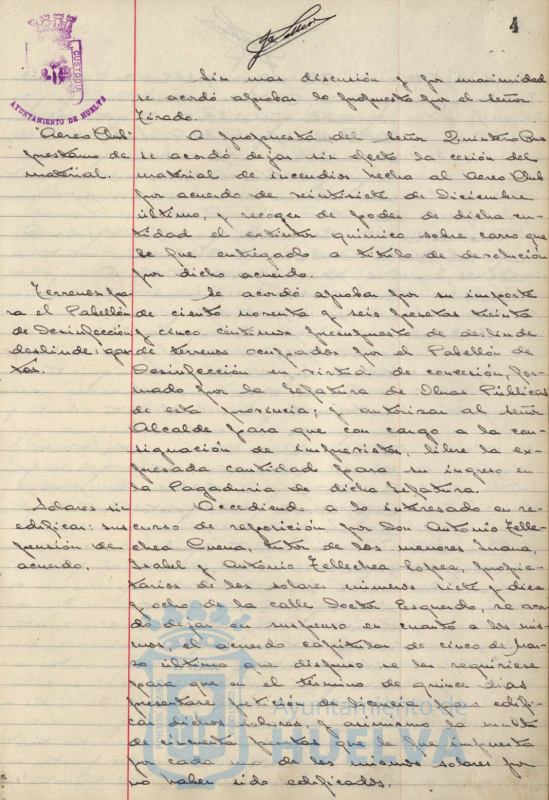 4
CUSTODIA
AYUNTAMIENTO DE HUELVA
Sin mas discusión y por unanimidad
se acordó aprobar lo propuesto por el señor
Tirado.
"Aereo Club"
prestamo de
material.
A propuesta del señor Quintero Bae
se acordó dejar sin efecto la cesión del
material de incendios hecha al Aereo Club
por acuerdo de veintisiete de Diciembre
último, y recoger de poder de dicha en-
tidad el extintor quimico sobre carro que
le fue entregado a titulo de devolución
por dicho acuerdo.
Terrenos pa-
ra el Pabellón
de Desinfección
deslinde: gas-
tos.
Se acordó aprobar por su importe
de ciento noventa y seis pesetas treinta
y cinco céntimos presupuesto de deslinde
de terrenos ocupados por el Pabellón de
Desinfección en virtud de concesión, for-
mado por la Jefatura de Obras Públicas
de esta provincia; y autorizar al señor
Alcalde para que con cargo a la con-
signación de imprevistos, libre la ex-
presada cantidad para su ingreso en
la Pagaduria de dicha Jefatura.
Solares sin
edificar: sus-
pensión de
acuerdo.
Accediendo a lo interesado en re-
curso de reposición por Don Antonio Telle-
chea Cuena, tutor de los menores Juana,
Isabel y Antonio Tellechea Lopez, propie-
tarios de los solares números siete y diez
y ocho de la calle Doctor Esquerdo, se acor-
dó dejar en suspenso en cuanto a los mis-
mos, el acuerdo capitular de cinco de Mar-
zo último que dispuso se les requiriese
para que en el termino de quince dias
presentare petición de licencia para edifi-
car dichos solares, y asimismo la multa
de cincuenta pesetas que le fue impuesta
por cada uno de los mismos solares por
no haber sido edificados.
Ayuntamiento de
HUELVA